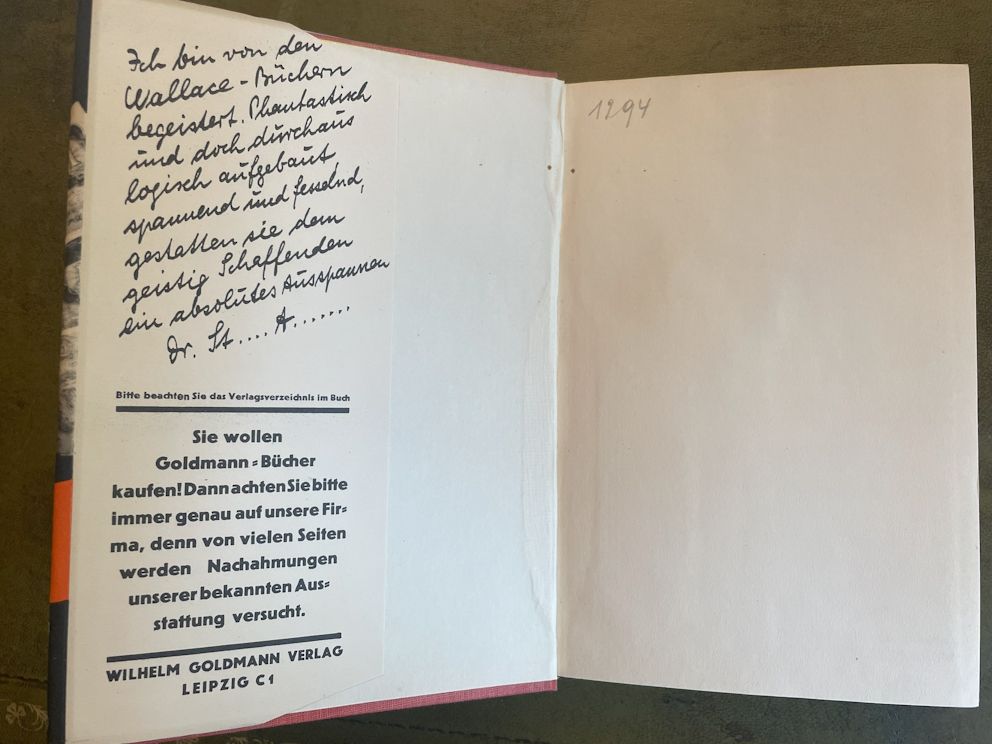 Ich bin von den
Wallace-Büchern
begeistert. Phantastisch
und doch durchaus
logisch aufgebaut,
spannend und fesselnd,
gestatten sie dem
geistig Schaffenden
ein absolutes Ausspannen
Dr. St.... A.......
Bitte beachten Sie das Verlagsverzeichnis im Buch
Sie wollen
Goldmann=Bücher
kaufen! Dann achten Sie bitte
immer genau auf unsere Fir=
ma, denn von vielen Seiten
werden Nachahmungen
unserer bekannten Aus=
stattung versucht.
WILHELM GOLDMANN VERLAG
LEIPZIG C1
1294